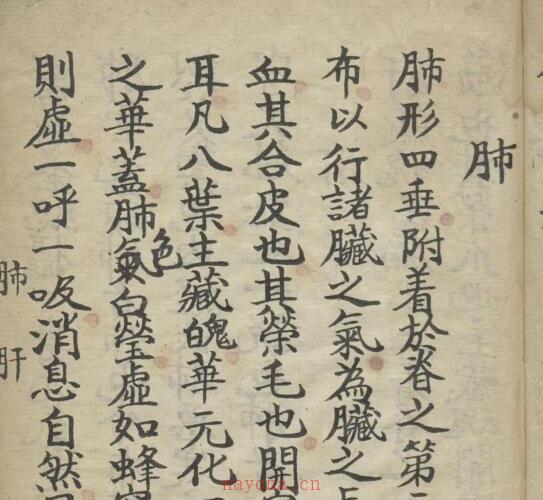 肺
肺形四垂附着於脊之第
布以行諸臟之氣為臟之
血其合皮也其榮毛也開
耳凡八葉主藏魄華元化
之華蓋肺氣色白瑩虛如蜂
則虛一呼一吸消息自然
肺 肝
nayona.cn